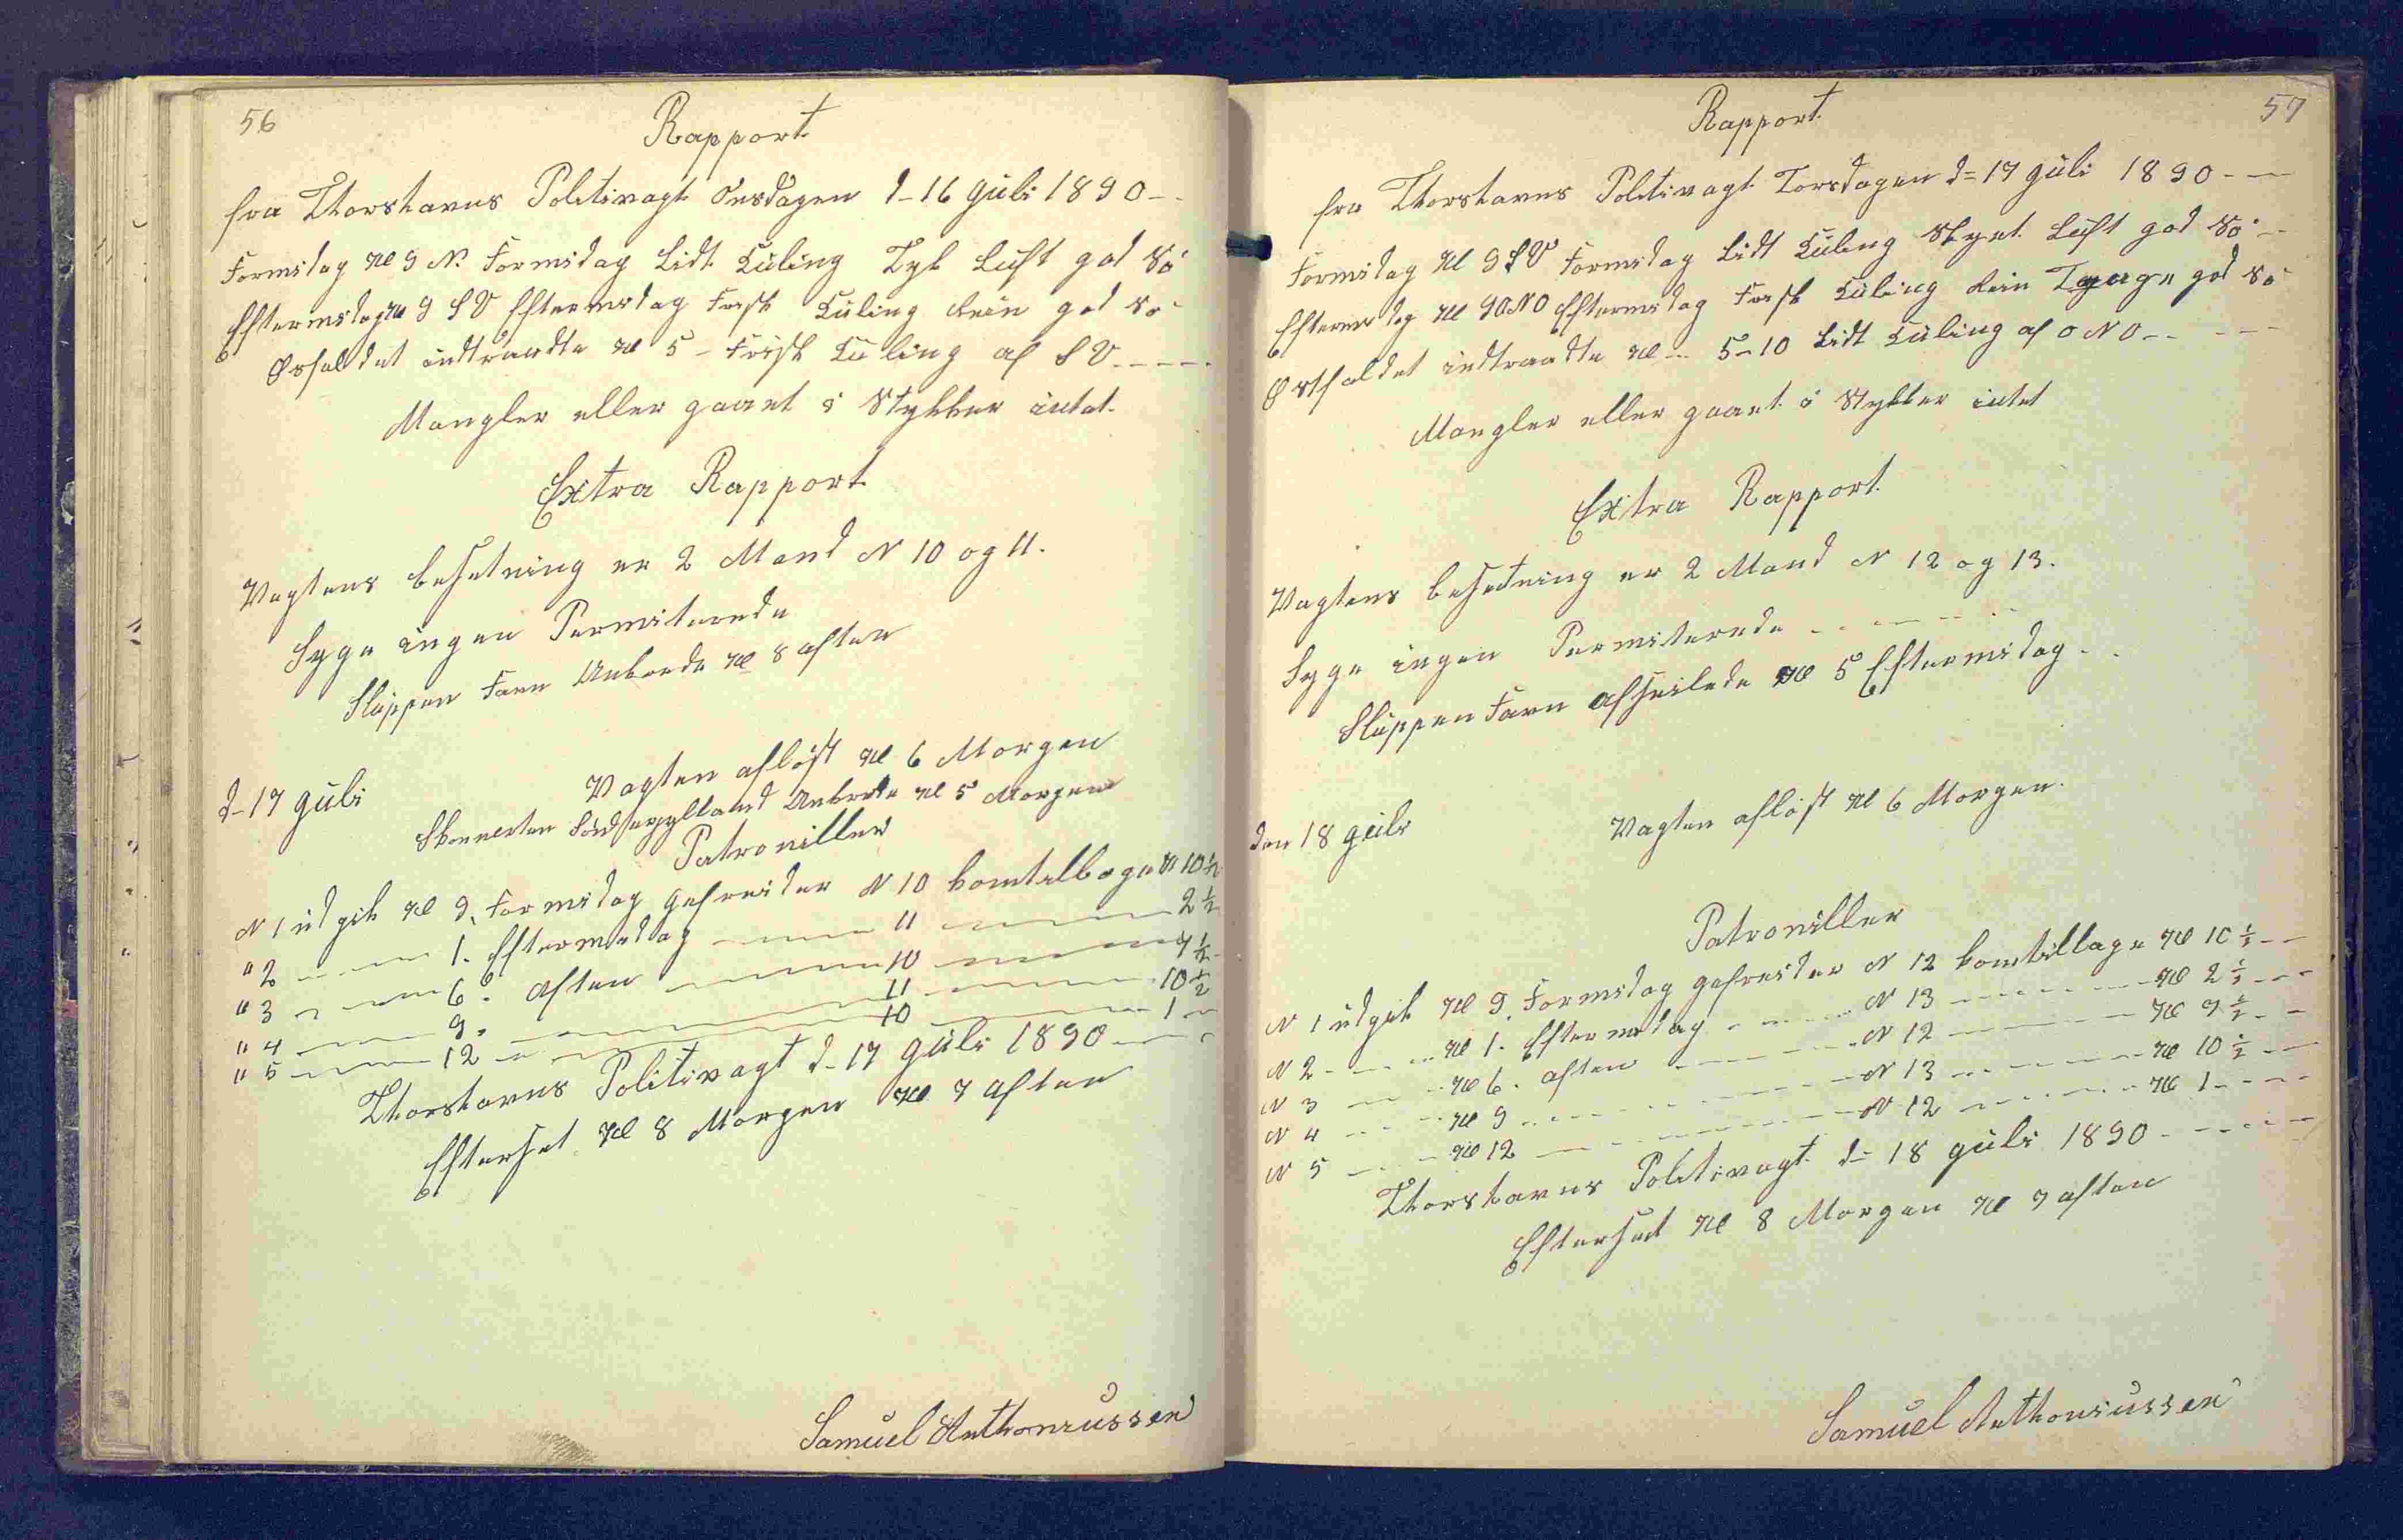 56
Rapport
fra Thorshavns Politivagt Onsdagen d- 16 Juli 1890 - -
Formidag Kl 9 N. Formidag Lidt Kuling Tyk Luft god Sö
Eftermidag Kl 9 SV Eftermidag Frisk Kuling Rein god Sö
Østfaldet indtraadte Kl 5 - Frisk Kuling af SV - - - -
Mangler eller gaaet i Stykker intet.
Extra Rapport
Vagtens besetning er 2 Mand N 10 og 11.
Syge ingen Permiterede
Sluppen Farn Ankrede Kl 8 aften
d- 17 Juli Vagten aflöst Kl 6 Morgen
Skonnerten Ankrede Kl 5 Morgen
Patroniller
N 1 udgik Kl 9. Formidag gefreider N 10 kom tilbage Kl 10 ½
" 2 - - - 1. Eftermidag - - - 11 - - - 2 ½
" 3 - - - 6. Aften - - - 10 - - - 7 ½
" 4 - - - 9. - - - 11 - - - 10 ½
" 5 - - - 12 - - - 10 - - - 1 -
Thorshavns Politivagt d- 17 Juli 1890 - - -
Efterset Kl 8 Morgen Kl 7 aften
Samuel Anthoniussen
57
Rapport
fra Thorshavns Politivagt Torsdagen d= 17 Juli 1890 - -
Formidag Kl 9 SV Formidag Lidt Kuling Skyet Luft god Sö - -
Eftermidag Kl 9 ONO Eftermidag Frisk Kuling Rein Taage god Sö
Østfaldet indtraadte Kl - 5-10 Lidt Kuling af ONO - - - -
Mangler eller gaaet i Stykker intet
Extra Rapport
Vagtens besetning er 2 Mand N 12 og 13.
Syge ingen Permiterede - - - -
Sluppen Farn afseilede Kl 5 Eftermidag - -
den 18 Juli Vagten aflöst Kl 6 Morgen.
Patroniller
N 1 udgik Kl 9. Formidag gefreider N 12 kom tilbage Kl 10 ½ - -
N 2 - - - Kl 1. Eftermidag - - - N 13 - - - Kl 2 ½ - -
N 3 - - - Kl 6. aften - - - N 12 - - - Kl 7 ½ - -
N 4 - - - Kl 9 - - - N 13 - - - Kl 10 ½ - -
N 5 - - - Kl 12 - - - N 12 - - - Kl 1 - - -
Thorshavns Politivagt d= 18 Juli 1890 - - - -
Efterset Kl 8 Morgen Kl 7 aften
Samuel Anthoniussen